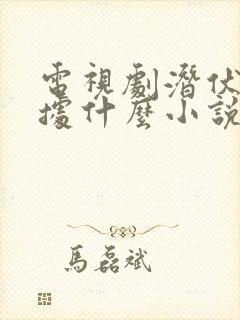 電視劇潛伏
據什麼小說
馬磊斌